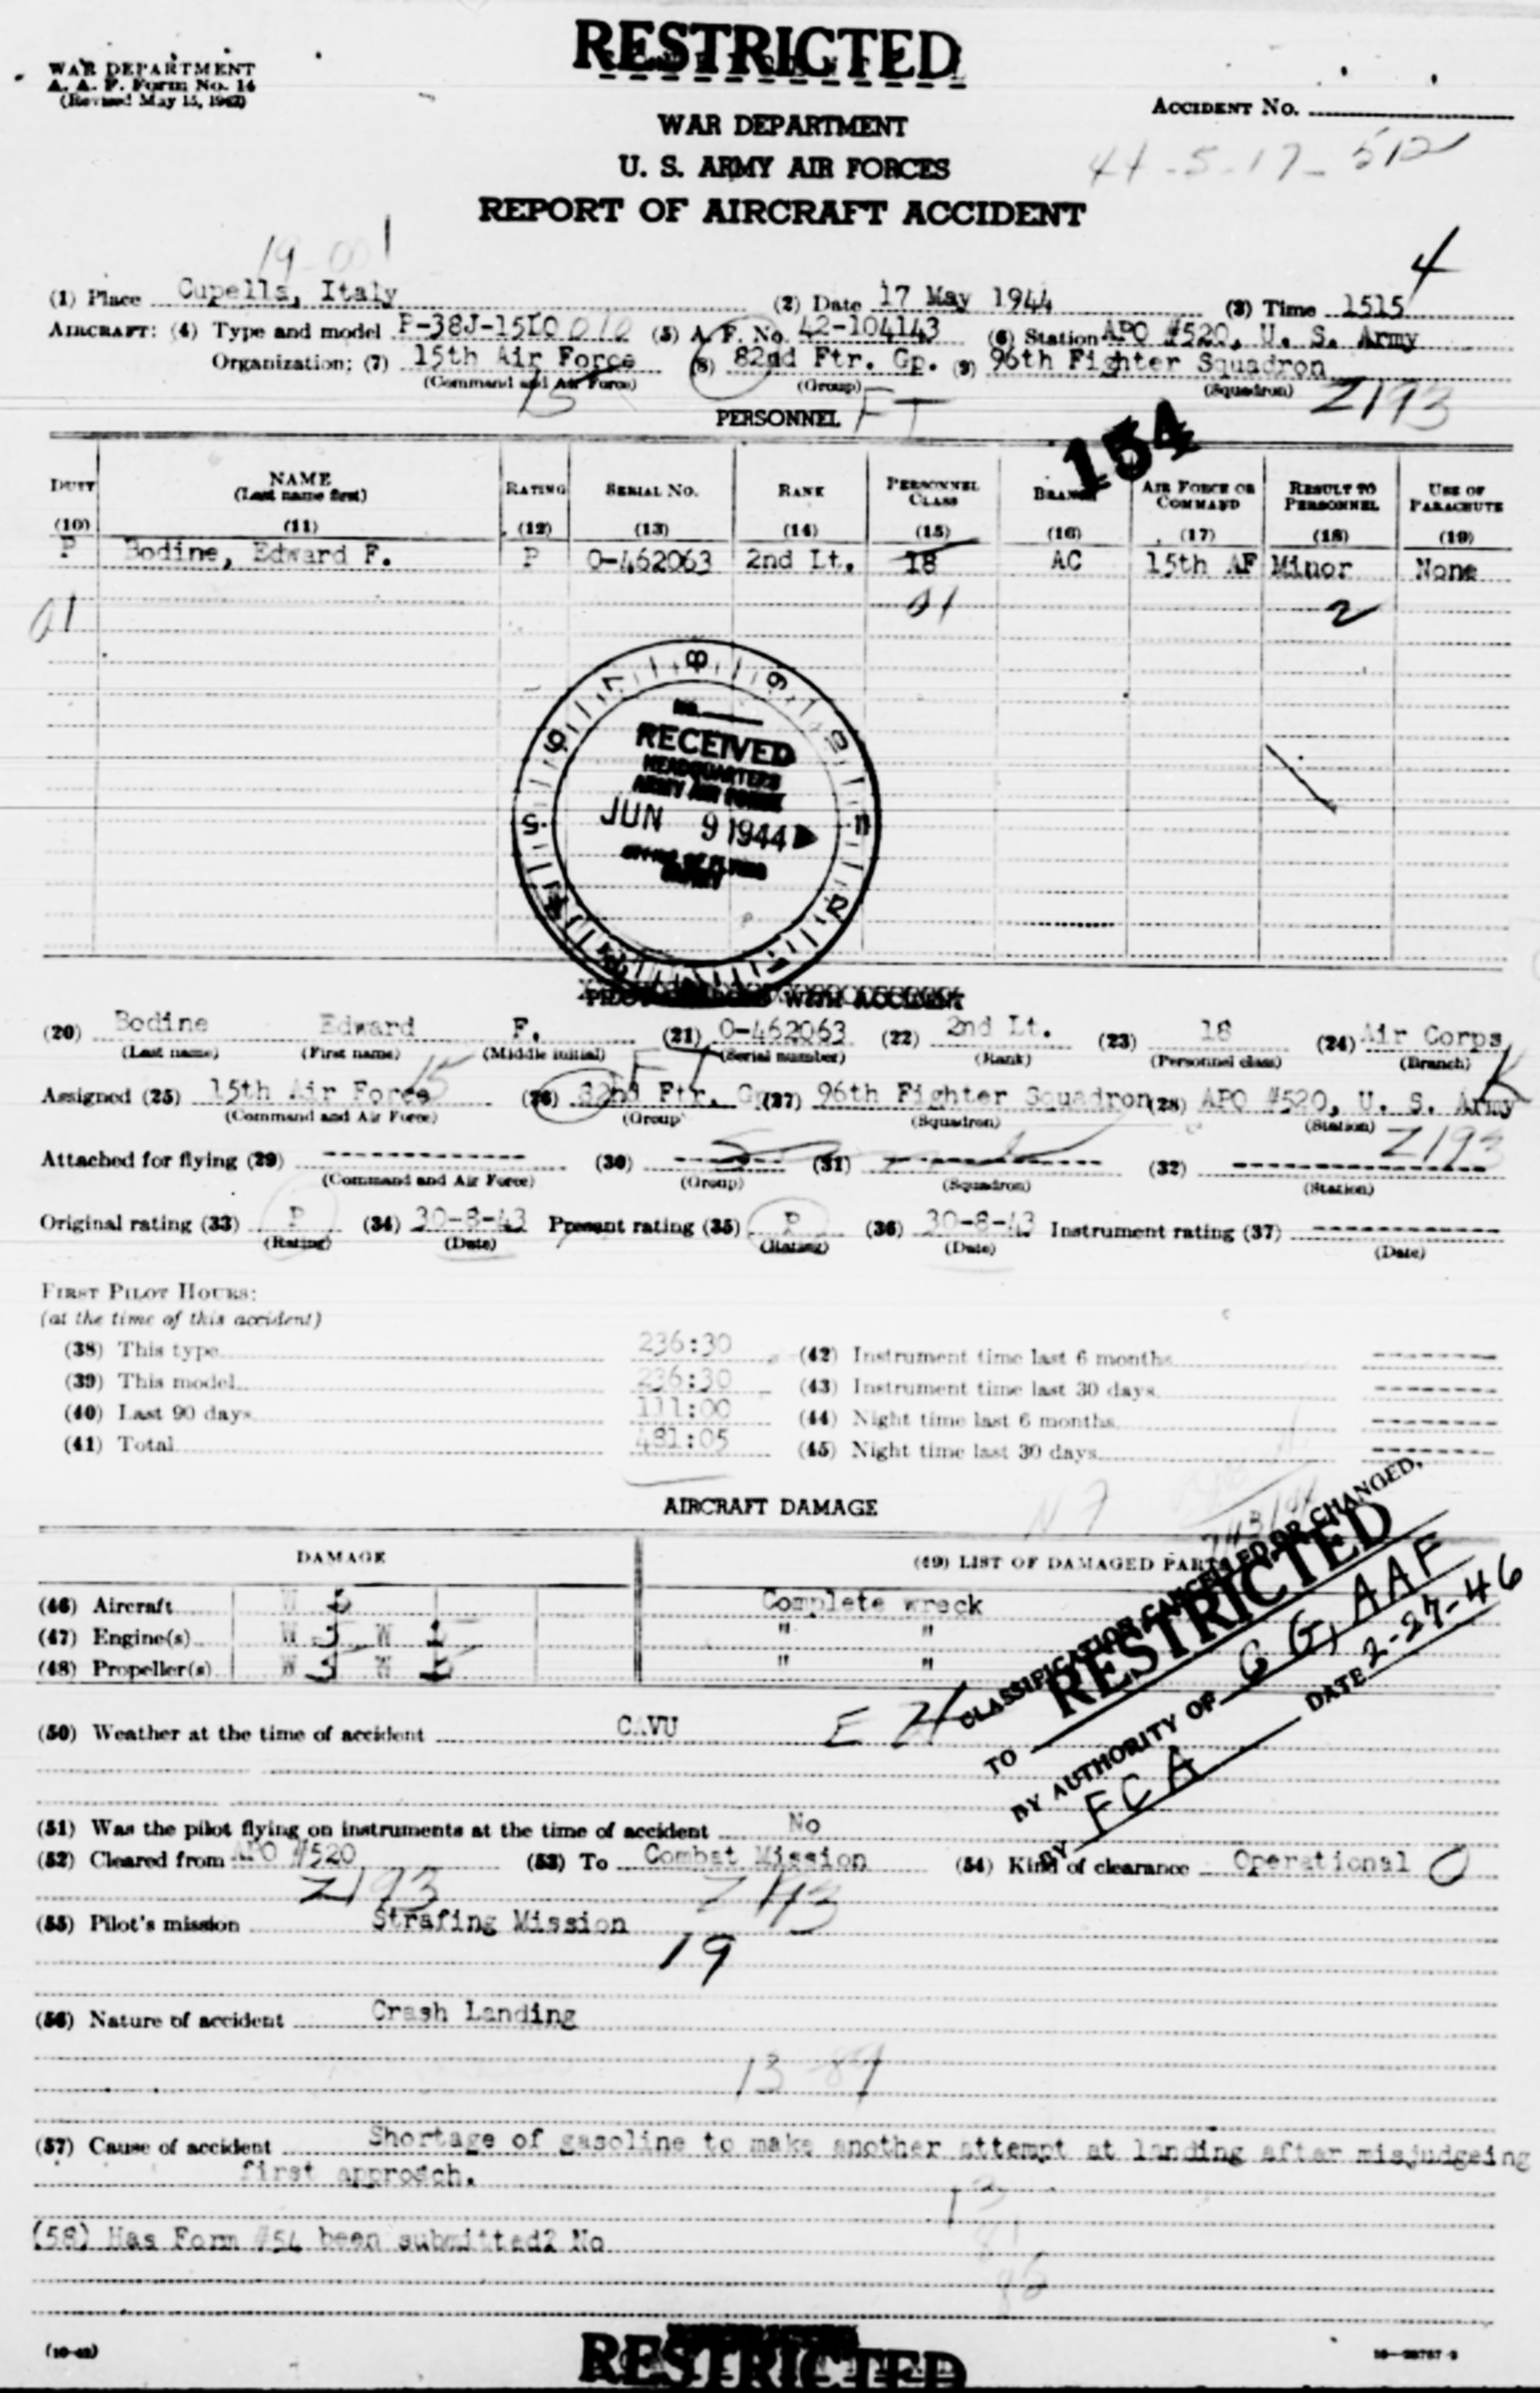 RESTRICTED
WAR DEPARTMENT
A. A. F. Form No. 14
(Revised May 15, 1942)
ACCIDENT No.
WAR DEPARTMENT
U. S. ARMY AIR FORCES
REPORT OF AIRCRAFT ACCIDENT
44-5-17-512
19-00 1
4
(1) Place Cupella, Italy (2) Date 17 May 1944 (3) Time 1515
AIRCRAFT: (4) Type and model P-38J-15LO (5) A. F. No. 42-104143 (6) Station APO #520, U. S. Army
Organization: (7) 15th Air Force (8) 82nd Ftr. Gp. (9) 96th Fighter Squadron
(Command and Air Force) (Group) (Squadron)
15 FT Z193
PERSONNEL
154
DUTY NAME (Last name first) RATING SERIAL No. RANK PERSONNEL CLASS BRANCH AIR FORCE OR COMMAND RESULT TO PERSONNEL USE OF PARACHUTE
(10) (11) (12) (13) (14) (15) (16) (17) (18) (19)
P Bodine, Edward F. P O-462063 2nd Lt. 18 AC 15th AF Minor None
01 01 2
RECEIVED
HEADQUARTERS
ARMY AIR FORCES
JUN 9 1944
PILOT WITH ACCIDENT
(20) Bodine Edward F. (21) O-462063 (22) 2nd Lt. (23) 18 (24) Air Corps
(Last name) (First name) (Middle initial) (Serial number) (Rank) (Personnel class) (Branch)
15 FT K
Assigned (25) 15th Air Force (26) 82nd Ftr. G (27) 96th Fighter Squadron (28) APO #520, U. S. Army
(Command and Air Force) (Group) (Squadron) (Station)
Z193
Attached for flying (29) (30) (31) (32)
(Command and Air Force) (Group) (Squadron) (Station)
Original rating (33) P (34) 30-8-43 Present rating (35) P (36) 30-8-43 Instrument rating (37)
(Rating) (Date) (Rating) (Date) (Date)
FIRST PILOT HOURS:
(at the time of this accident)
(38) This type 236:30 (42) Instrument time last 6 months
(39) This model 236:30 (43) Instrument time last 30 days
(40) Last 90 days 111:00 (44) Night time last 6 months
(41) Total 481:05 (45) Night time last 30 days
AIRCRAFT DAMAGE
DAMAGE (49) LIST OF DAMAGED PARTS
(46) Aircraft W Complete wreck
(47) Engine(s) W W " "
(48) Propeller(s) W W " "
CLASSIFICATION CANCELLED OR CHANGED,
TO RESTRICTED
BY AUTHORITY OF C G, AAF
BY FCA DATE 2-27-46
(50) Weather at the time of accident CAVU
(51) Was the pilot flying on instruments at the time of accident No
(52) Cleared from APO #520 (53) To Combat Mission (54) Kind of clearance Operational O
Z193 Z193
(55) Pilot's mission Strafing Mission
19
(56) Nature of accident Crash Landing
13
(57) Cause of accident Shortage of gasoline to make another attempt at landing after misjudgeing
first approach.
13
(58) Has Form #54 been submitted? No
(10-42)
RESTRICTED